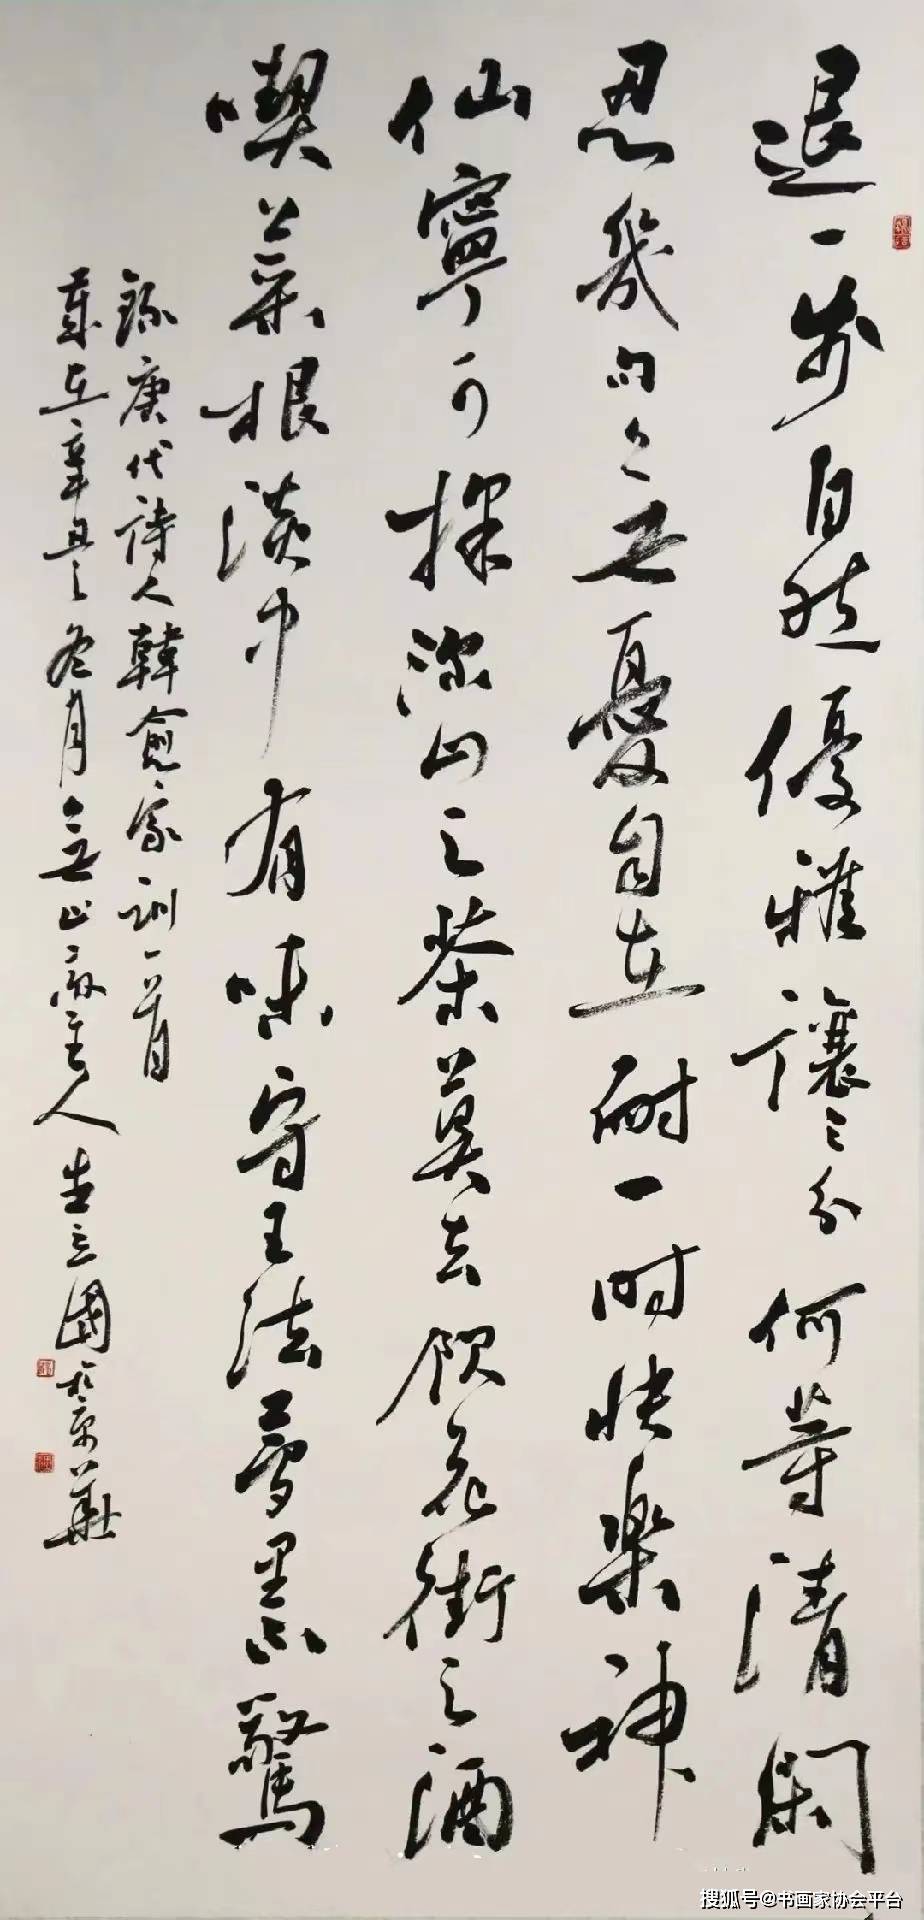 退一步自然優雅讓三分何等清閑
忍幾句無憂自在耐一時快樂神
仙寧可採深山之茶莫去飲花街之酒
喫菜根淡中有味守王法夢里不驚
錄唐代詩人韓愈家訓一首
歲在辛丑冬月主人國於京華
搜狐号@书画家协会平台